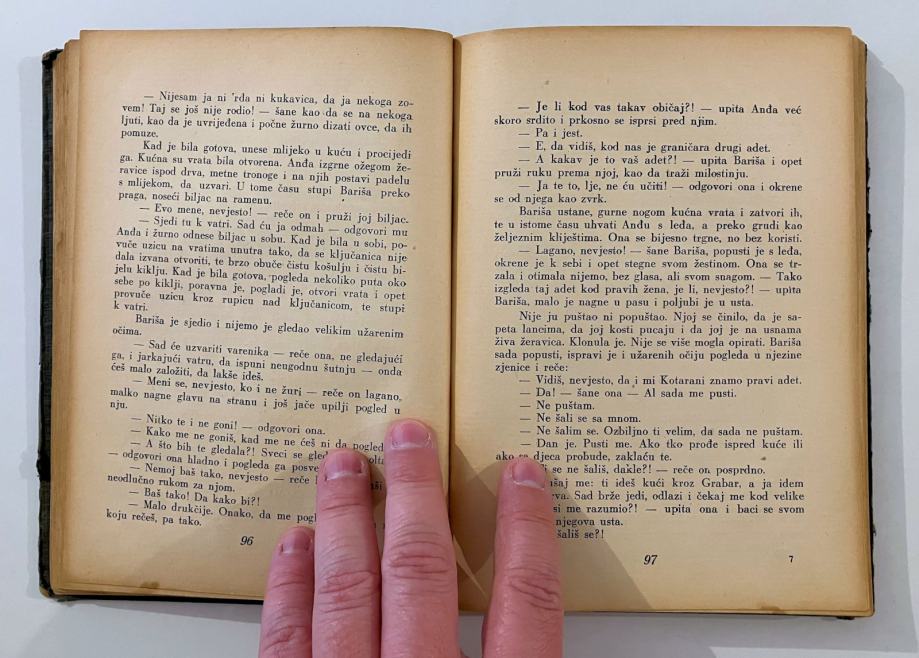 — Nijesam ja ni 'rđa ni kukavica, da ja nekoga zo-
vem! Taj se još nije rodio! — šane kao da se na nekoga
ljuti, kao da je uvrijeđena i počne žurno dizati ovce, da ih
pomuze.
Kad je bila gotova, unese mlijeko u kuću i procijedi
ga. Kućna su vrata bila otvorena. Anđa izgrne ožegom že-
ravice ispod drva, metne tronoge i na njih postavi padelu
s mlijekom, da uzvari. U tome času stupi Bariša preko
praga, noseći biljac na ramenu.
— Evo mene, nevjesto! — reče on i pruži joj biljac.
— Sjedi tu k vatri. Sad ću ja odmah — odgovori mu
Anđa i žurno odnese biljac u sobu. Kad je bila u sobi, po-
vuče uzicu na vratima unutra tako, da se ključanica nije
dala izvana otvoriti, te brzo obuče čistu košulju i čistu bi-
jelu kiklju. Kad je bila gotova, pogleda nekoliko puta oko
sebe po kiklji, poravna je, pogladi je, otvori vrata i opet
provuče uzicu kroz rupicu nad ključanicom, te stupi
k vatri.
Bariša je sjedio i nijemo je gledao velikim užarenim
očima.
— Sad će uzvariti varenika — reče ona, ne gledajući
ga, i jarkajući vatru, da ispuni neugodnu šutnju — onda
ćeš malo založiti, da lakše ideš.
— Meni se, nevjesto, ko i ne žuri — reče on lagano,
malko nagne glavu na stranu i još jače upilji pogled u
nju.
— Nitko te i ne goni! — odgovori ona.
— Kako me ne goniš, kad me ne ćeš ni da pogled
— A što bih te gledala?! Sveci se gled
— odgovori ona hladno i pogleda ga posve
— Nemoj baš tako, nevjesto — reče
neodlučno rukom za njom.
— Baš tako! Da kako bi?!
— Malo drukčije. Onako, da me pogl
koju rečeš, pa tako.
96
— Je li kod vas takav običaj?! — upita Anđa već
skoro srdito i prkosno se isprsi pred njim.
— Pa i jest.
— E, da vidiš, kod nas je graničara drugi adet.
— A kakav je to vaš adet?! — upita Bariša i opet
pruži ruku prema njoj, kao da traži milostinju.
— Ja te to, lje, ne ću učiti! — odgovori ona i okrene
se od njega kao zvrk.
Bariša ustane, gurne nogom kućna vrata i zatvori ih,
te u istome času uhvati Anđu s leđa, a preko grudi kao
željeznim kliještima. Ona se bijesno trgne, no bez koristi.
— Lagano, nevjesto! — šane Bariša, popusti je s leđa,
okrene je k sebi i opet stegne svom žestinom. Ona se tr-
zala i otimala nijemo, bez glasa, ali svom snagom. — Tako
izgleda taj adet kod pravih žena, je li, nevjesto?! — upita
Bariša, malo je nagne u pasu i poljubi je u usta.
Nije ju puštao ni popuštao. Njoj se činilo, da je sa-
peta lancima, da joj kosti pucaju i da joj je na usnama
živa žeravica. Klonula je. Nije se više mogla opirati. Bariša
sada popusti, ispravi je i užarenih očiju pogleda u njezine
zjenice i reče:
— Vidiš, nevjesto, da i mi Kotarani znamo pravi adet.
— Da! — šane ona — Al sada me pusti.
— Ne puštam.
— Ne šali se sa mnom.
— Ne šalim se. Ozbiljno ti velim, da sada ne puštam.
— Dan je. Pusti me. Ako tko prođe ispred kuće ili
ako se djeca probude, zaklaću te.
se ne šališ, dakle?! — reče on posprdno.
me: ti ideš kući kroz Grabar, a ja idem
Sad brže jedi, odlazi i čekaj me kod velike
si me razumio?! — upita ona i baci se svom
njegova usta.
šališ se?!
97
7